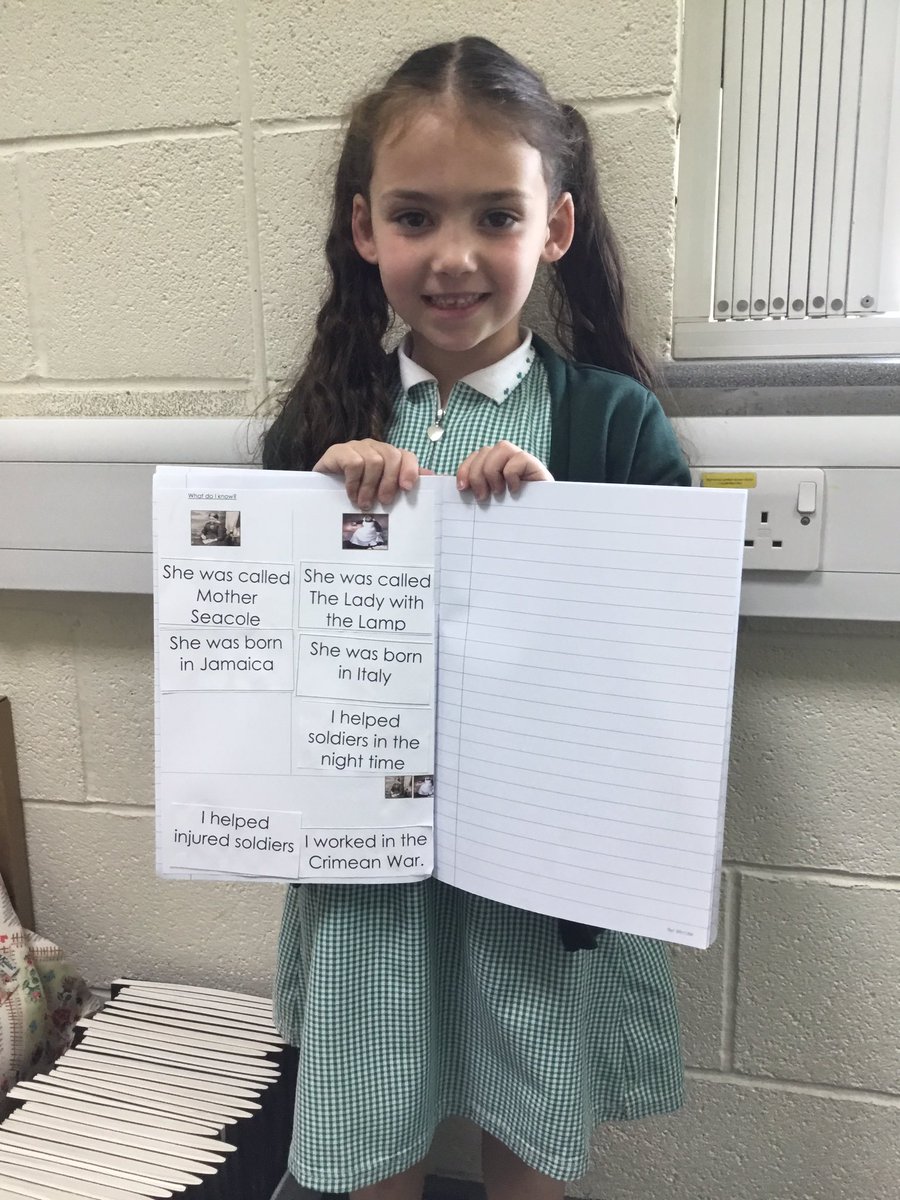 What do I know?
She was called
Mother
Seacole
She was born
in Jamaica
She was called
The Lady with
the Lamp
She was born
in Italy
I helped
soldiers in the
night time
I helped
injured soldiers
I worked in the
Crimean War.